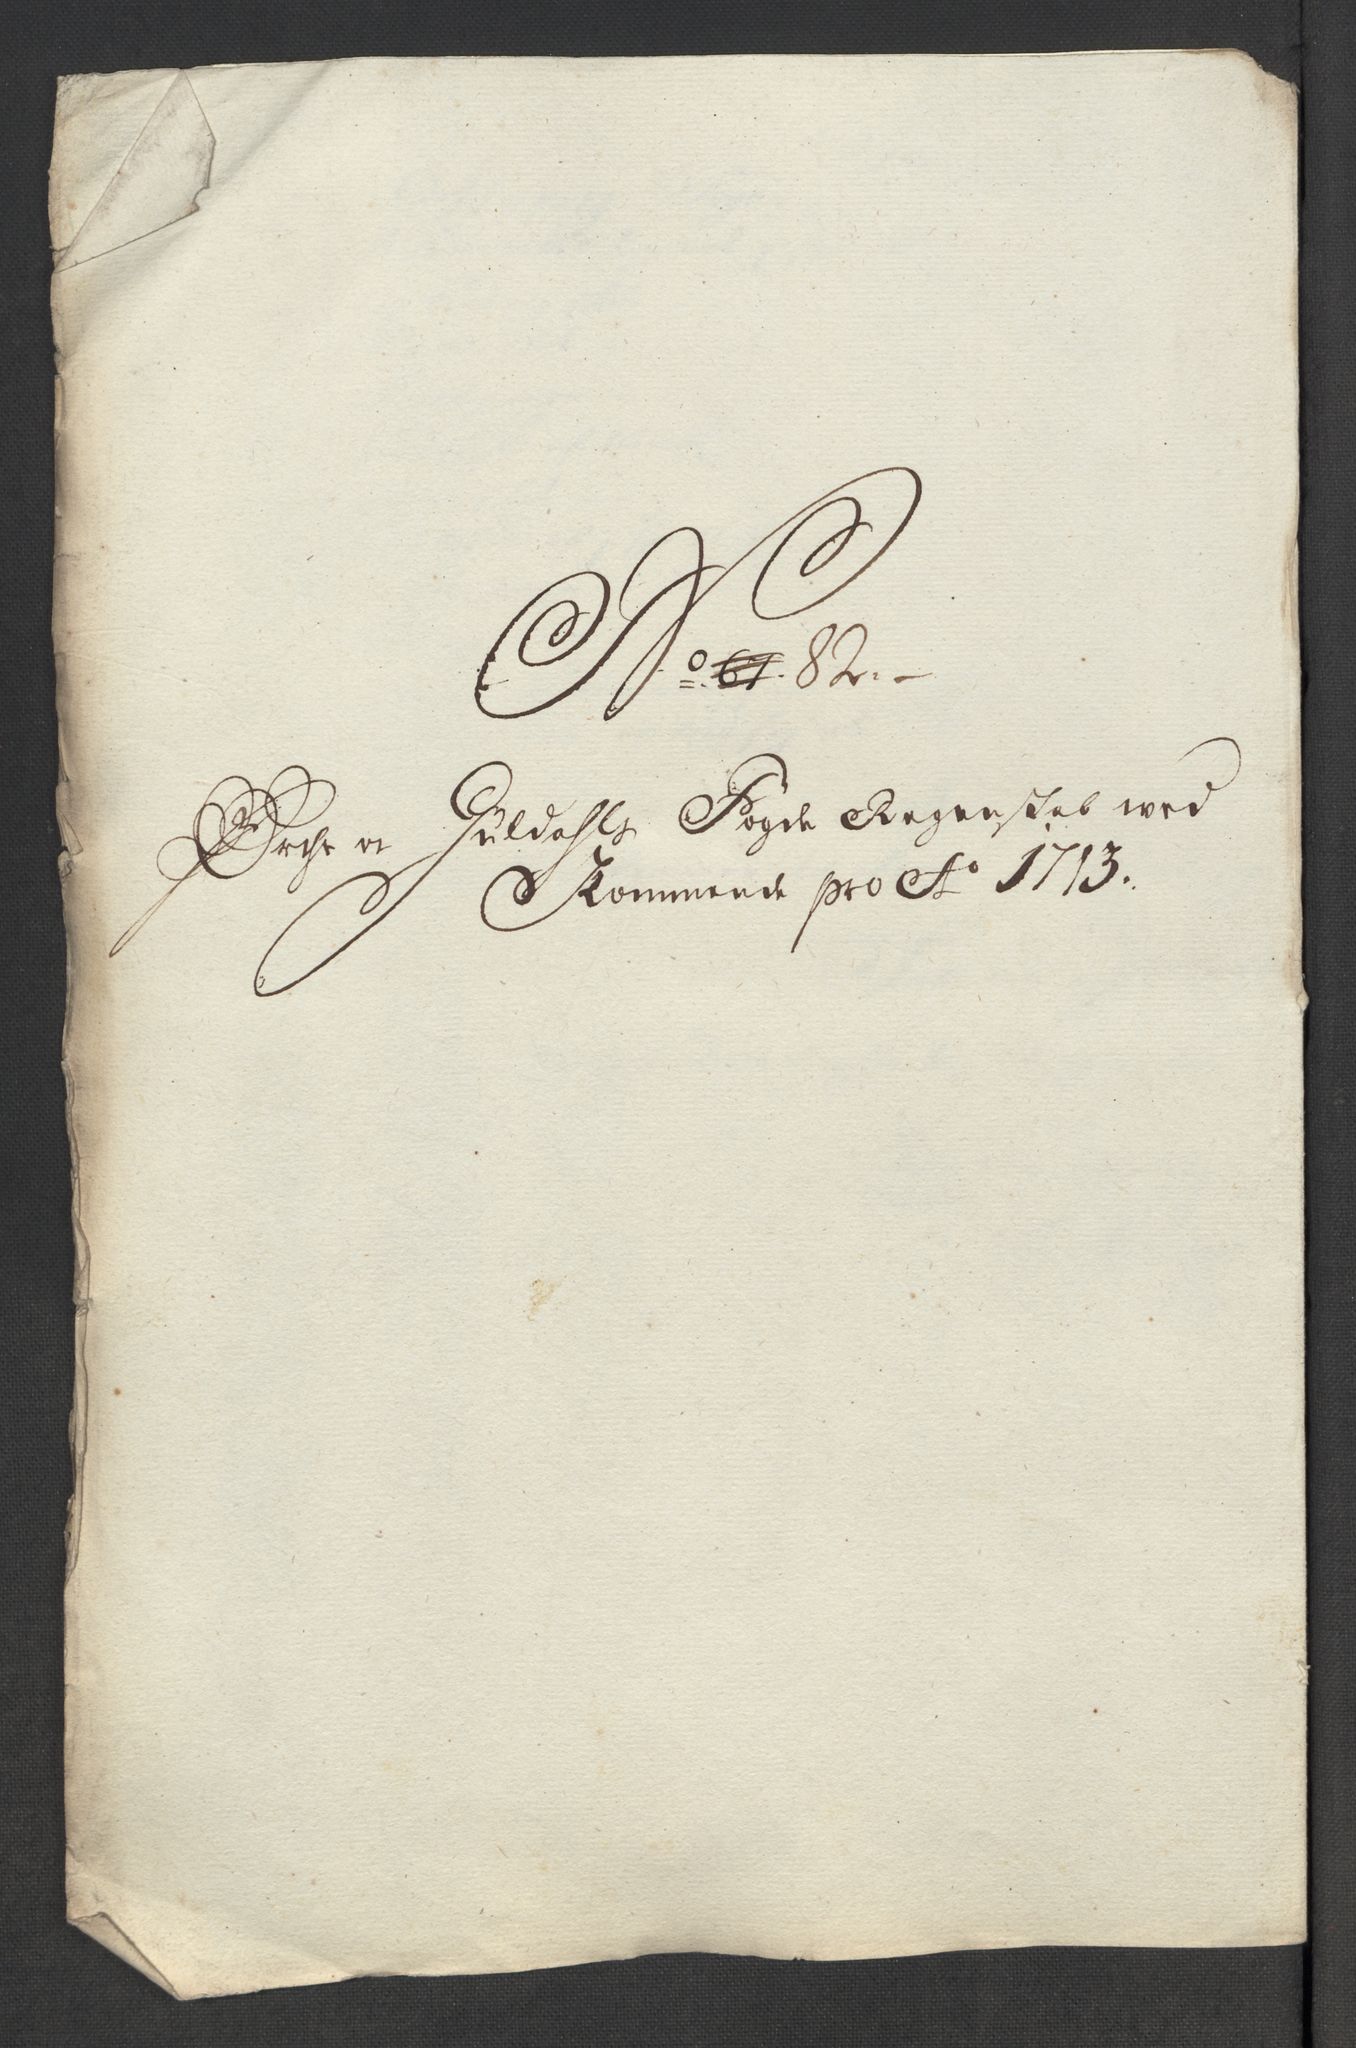 No 61. 82.
Orche oc Guldahls Fogde Regenskab wed
Kommende pro Ao 1713.